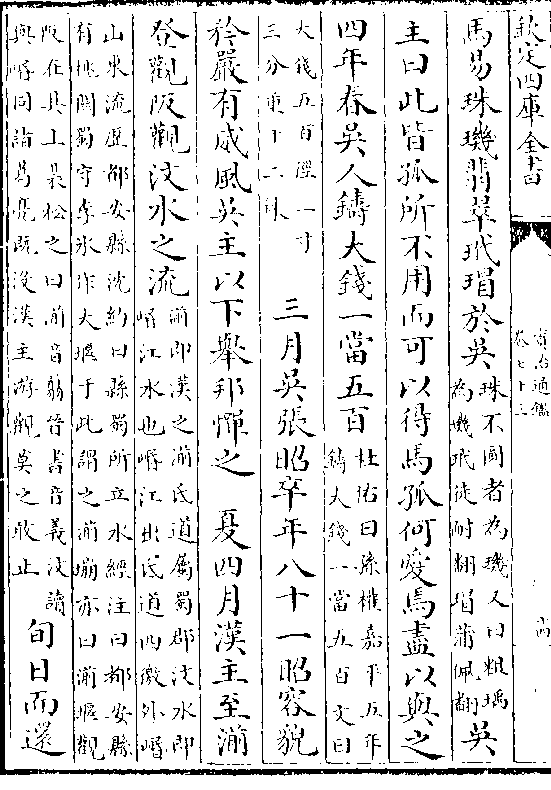 欽定四庫全書
資治通鑑
卷七十三
十四
馬易珠璣翡翠玳瑁於吳
珠不圓者為璣又曰粗瑀
為璣玳徒耐翻瑁蒲佩翻
吳
主曰此皆孤所不用而可以得馬孤何愛焉盡以與之
四年春吳人鑄大錢一當五百
杜佑曰孫權嘉平五年
鑄大錢一當五百文曰
大錢五百徑一寸
三分重十二銖
三月吳張昭卒年八十一昭容貌
矜嚴有威風吳主以下舉邦憚之 夏四月漢主至湔
登觀阪觀汶水之流
湔即漢之湔氐道屬蜀郡汶水即
㟭江水也㟭江出氐道西徼外㟭
山東流歷都安縣沈約曰縣蜀所立水經注曰都安縣
有桃關蜀守李冰作大堰于此謂之湔堋亦曰湔堰觀
阪在其上裴松之曰湔音翦晉書音義汶讀
與㟭同諸葛亮既沒漢主游觀莫之敢止
旬日而還